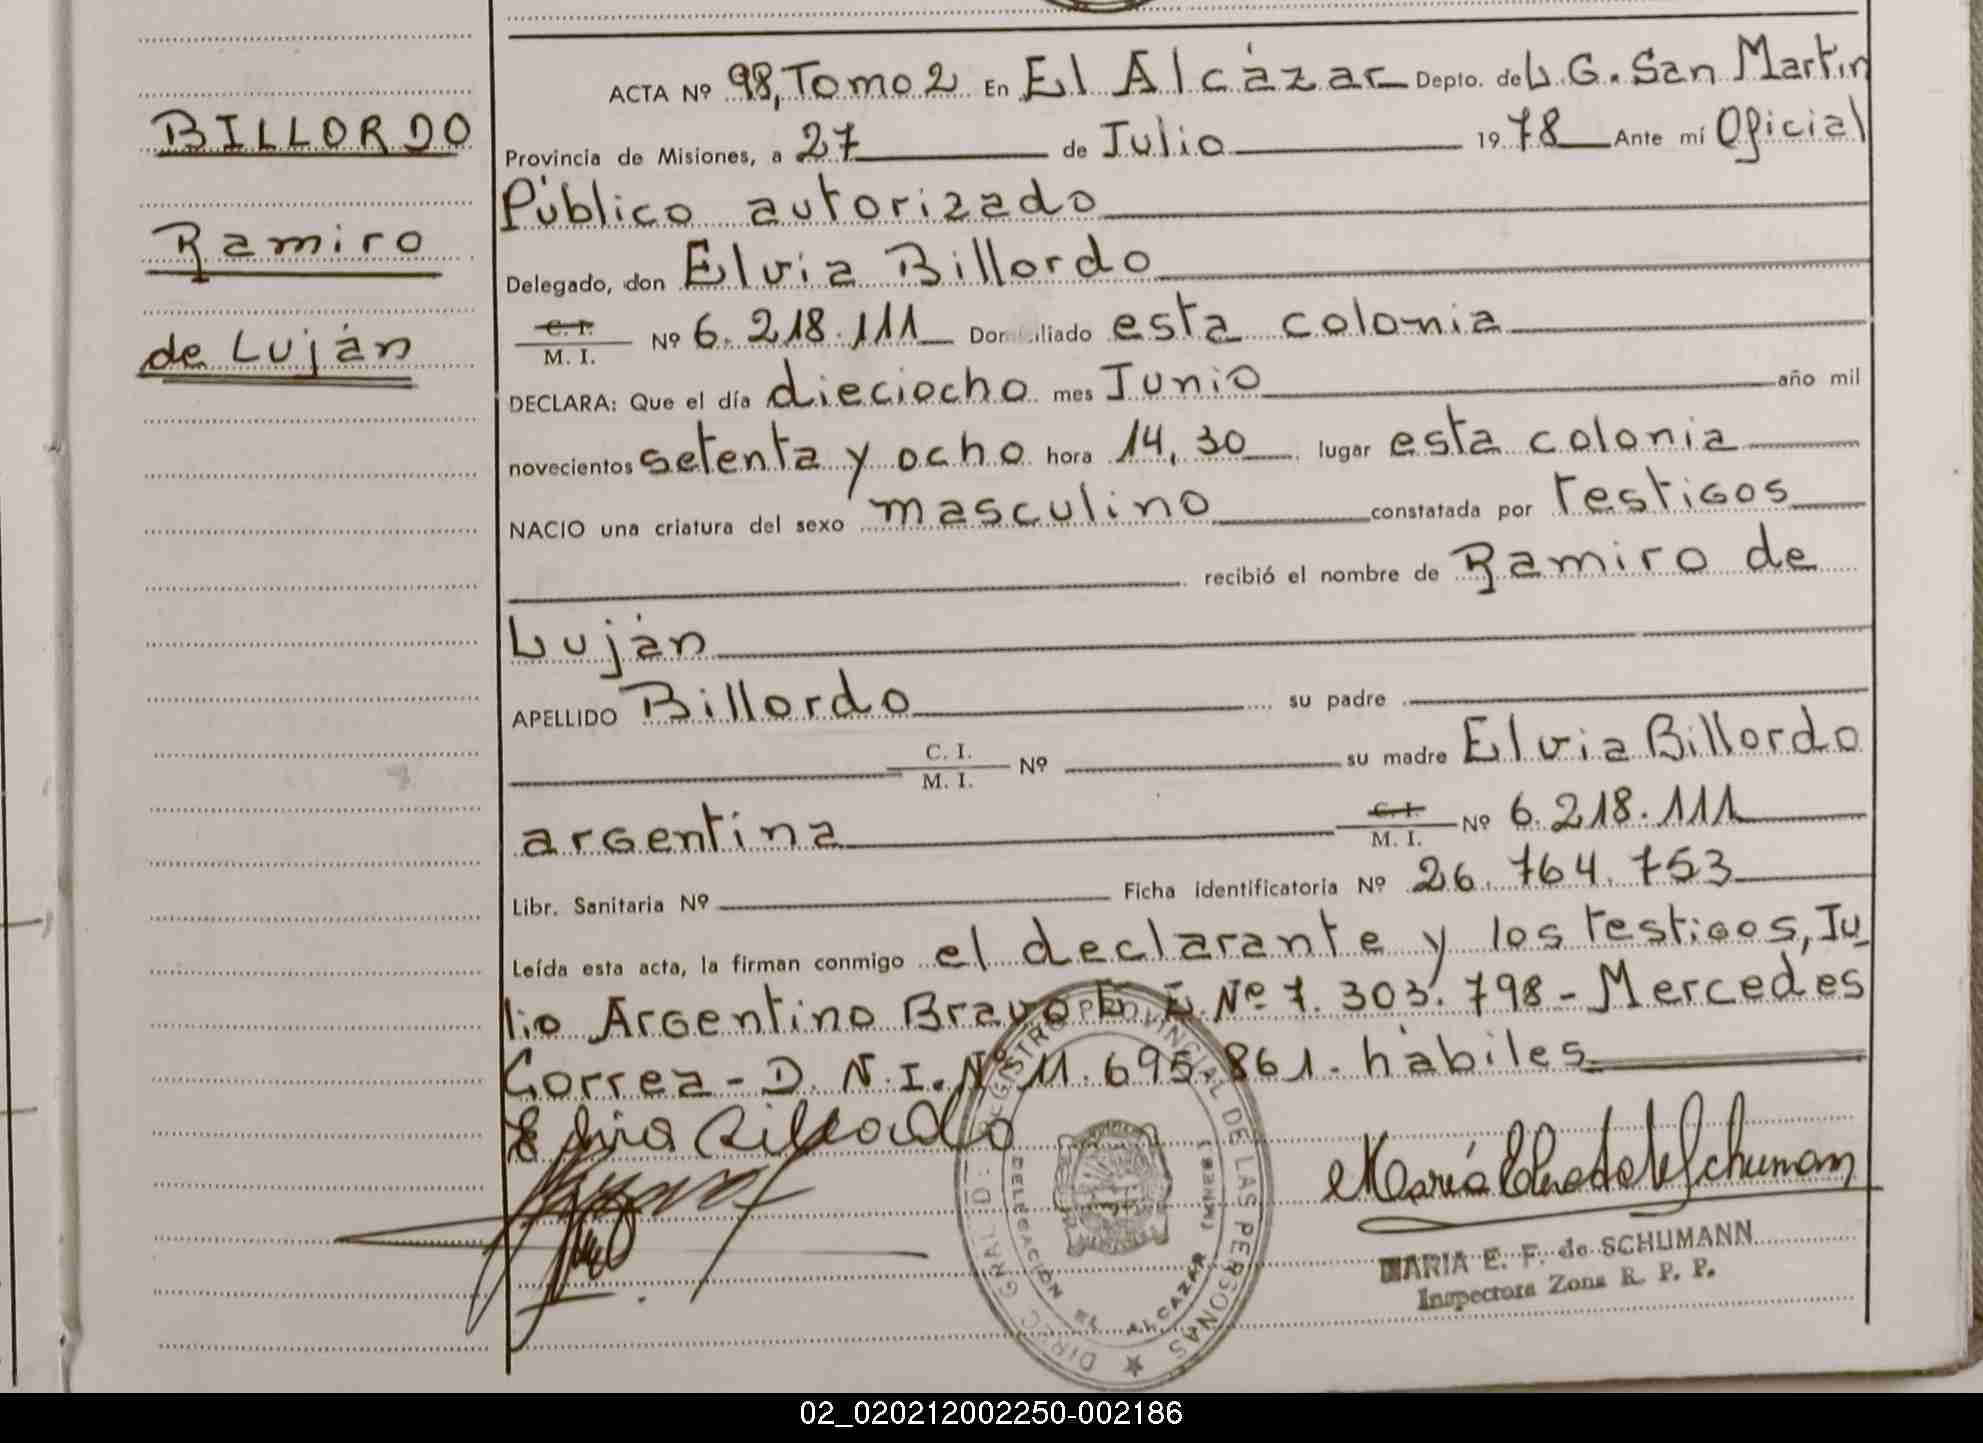 BILLORDO
Ramiro
de Luján
ACTA Nº 98, Tomo 2 En El Alcázar Depto. de L. G. San Martín
Provincia de Misiones, a 27 de Julio 1978 Ante mí Oficial
Público autorizado
Delegado, don Elvia Billordo
C. I.
M. I. Nº 6.218.111 Domiciliado esta colonia
DECLARA: Que el día dieciocho mes Junio año mil
novecientos setenta y ocho hora 14,30 lugar esta colonia
NACIO una criatura del sexo masculino constatada por testigos
recibió el nombre de Ramiro de
Luján
APELLIDO Billordo su padre
C. I.
M. I. Nº su madre Elvia Billordo
argentina C. I.
M. I. Nº 6.218.111
Libr. Sanitaria Nº Ficha identificatoria Nº 26.764.753
Leída esta acta, la firman conmigo el declarante y los testigos, Ju
lio Argentino Bravo Nº 7.303.798 - Mercedes
Correa - D. N. I. Nº 11.695.861. hábiles
Elvia Billordo
MARIA E. F. de SCHUMANN
Inspectora Zona R. P. P.
DIREC. GRAL. D REGISTRO PROVINCIAL DE LAS PERSONAS
DELEGACION EL ALCAZAR (MNES)
02_020212002250-002186